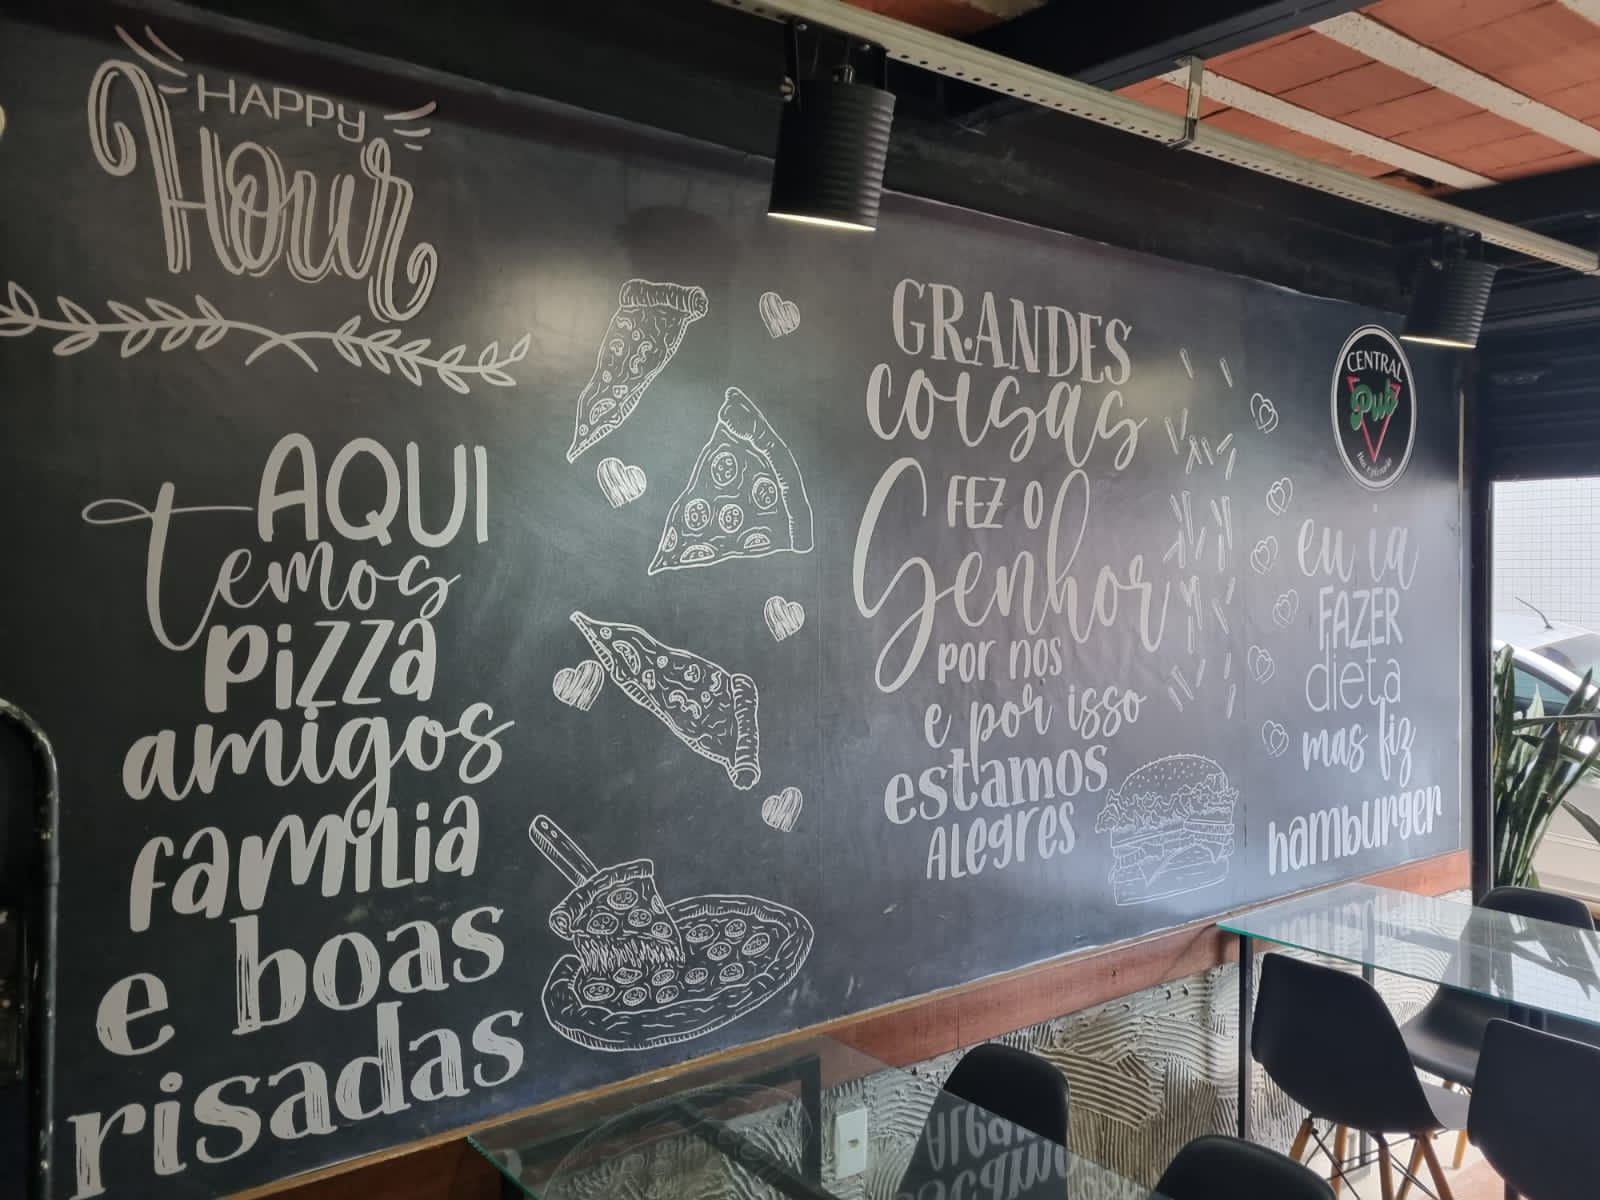 HAPPY
Hour
AQUI
temos
pizza
amigos
família
e boas
risadas
GRANDES
coisas
FEZ O
Senhor
por nós
e por isso
estamos
Alegres
CENTRAL
Pub
eu ia
FAZER
dieta
mas fiz
hamburger